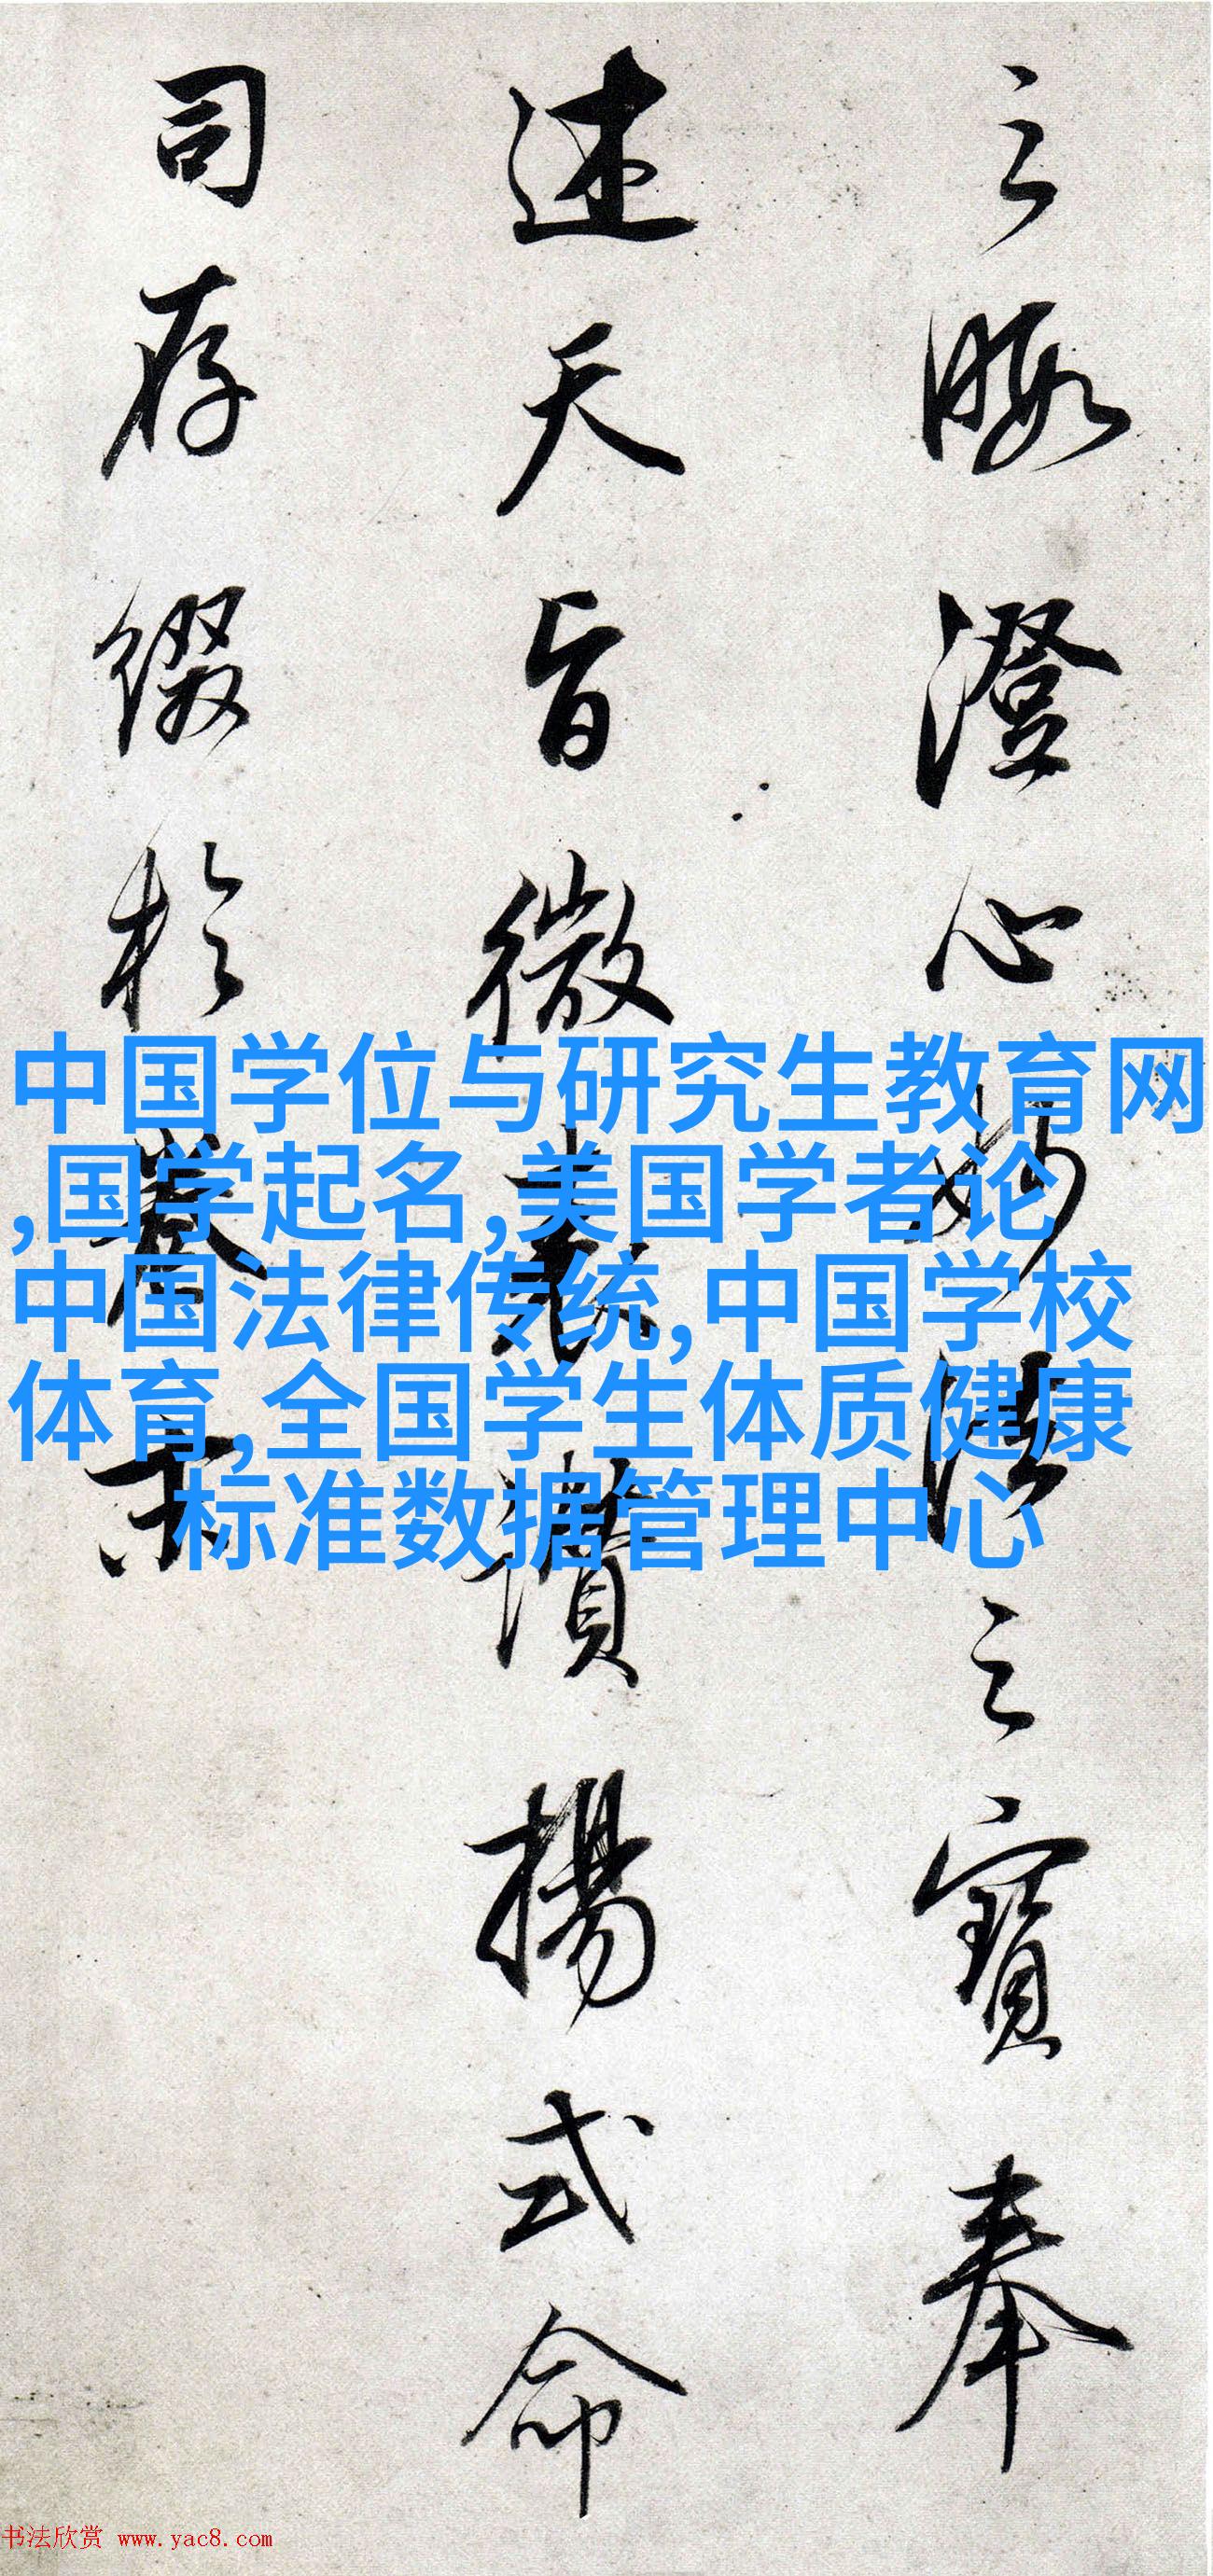 之暇澄心妙法之寶奉
述天旨微表讚揚式命
司存綴於卷末
中国学位与研究生教育网
,国学起名,美国学者论
中国法律传统,中国学校
体育,全国学生体质健康
标准数据管理中心
书法欣赏 www.yac8.com